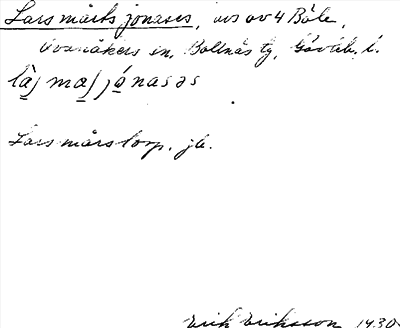 Lars märts jonases, avs av 4 Böle,
Ovanåkers sn, Bollnäs tg, Gävleb. l.
Lars mårstorp, jb.
Erik Eriksson 1930